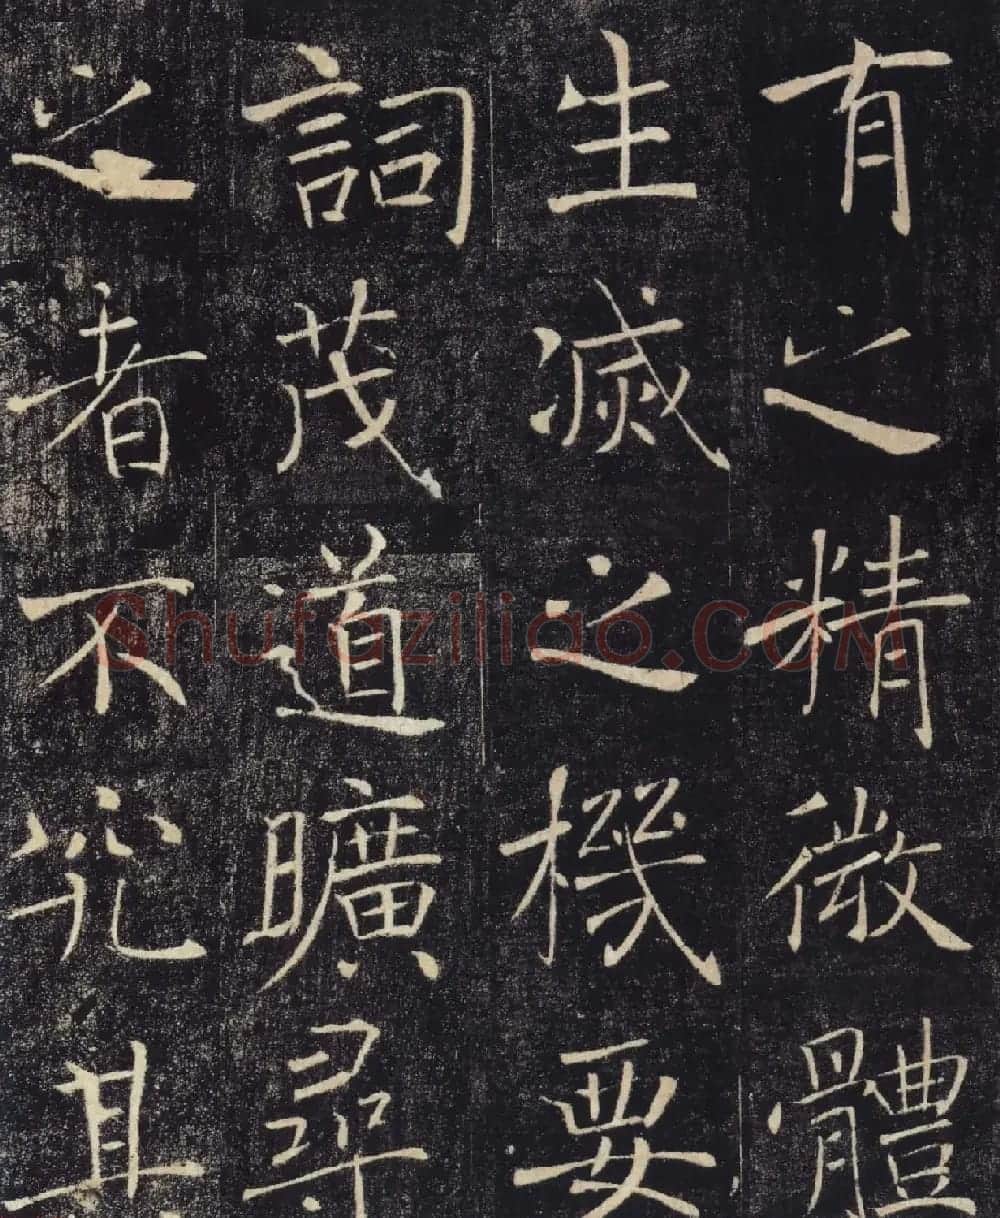 有之精微體
生滅之機要
詞茂道曠尋
之者不究其
Shufaziliao.COM